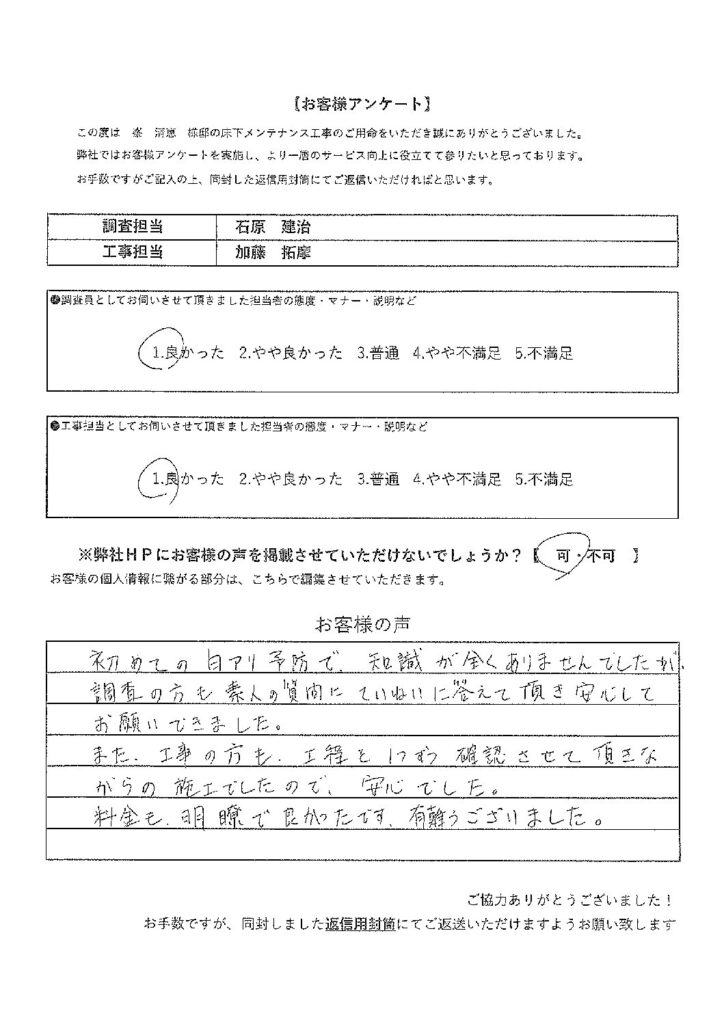 【お客様アンケート】
この度は 峯 清恵 様邸の床下メンテナンス工事のご用命をいただき誠にありがとうございました。
弊社ではお客様アンケートを実施し、より一層のサービス向上に役立てて参りたいと思っております。
お手数ですがご記入の上、同封した返信用封筒にてご返信いただければと思います。
調査担当 石原 建治
工事担当 加藤 拓摩
●調査員としてお伺いさせて頂きました担当者の態度・マナー・説明など
1.良かった 2.やや良かった 3.普通 4.やや不満足 5.不満足
●工事担当としてお伺いさせて頂きました担当者の態度・マナー・説明など
1.良かった 2.やや良かった 3.普通 4.やや不満足 5.不満足
※弊社HPにお客様の声を掲載させていただけないでしょうか？【 可・不可 】
お客様の個人情報に繋がる部分は、こちらで編集させていただきます。
お客様の声
初めての白アリ予防で、知識が全くありませんでしたが、
調査の方も素人の質問にていねいに答えて頂き安心して
お願いできました。
また、工事の方も、工程を1つずつ確認させて頂きな
がらの施工でしたので、安心でした。
料金も、明瞭で良かったです、有難うございました。
ご協力ありがとうございました！
お手数ですが、同封しました返信用封筒にてご返送いただけますようお願い致します